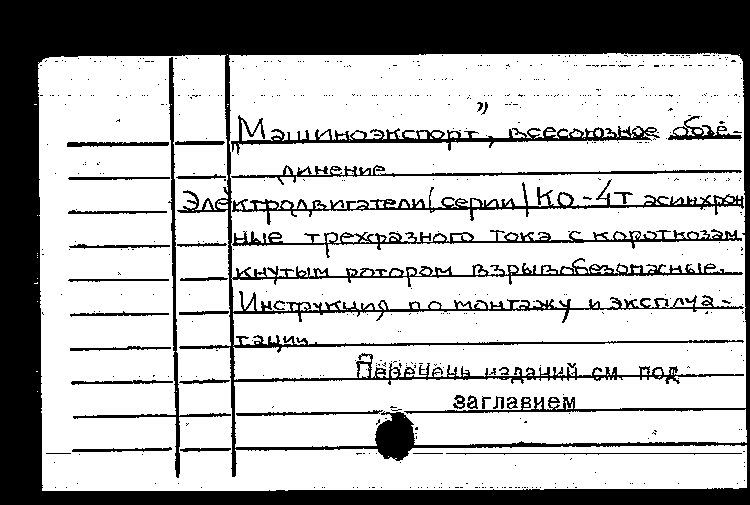 "Машиноэкспорт", всесоюзное объе-
динение.
Электродвигатели (серии) КО-4т асинхрон
ные трехфазного тока с короткозам
кнутым ротором взрывобезопасные.
Инструкция по монтажу и эксплуа-
тации.
Перечень изданий см. под
заглавием